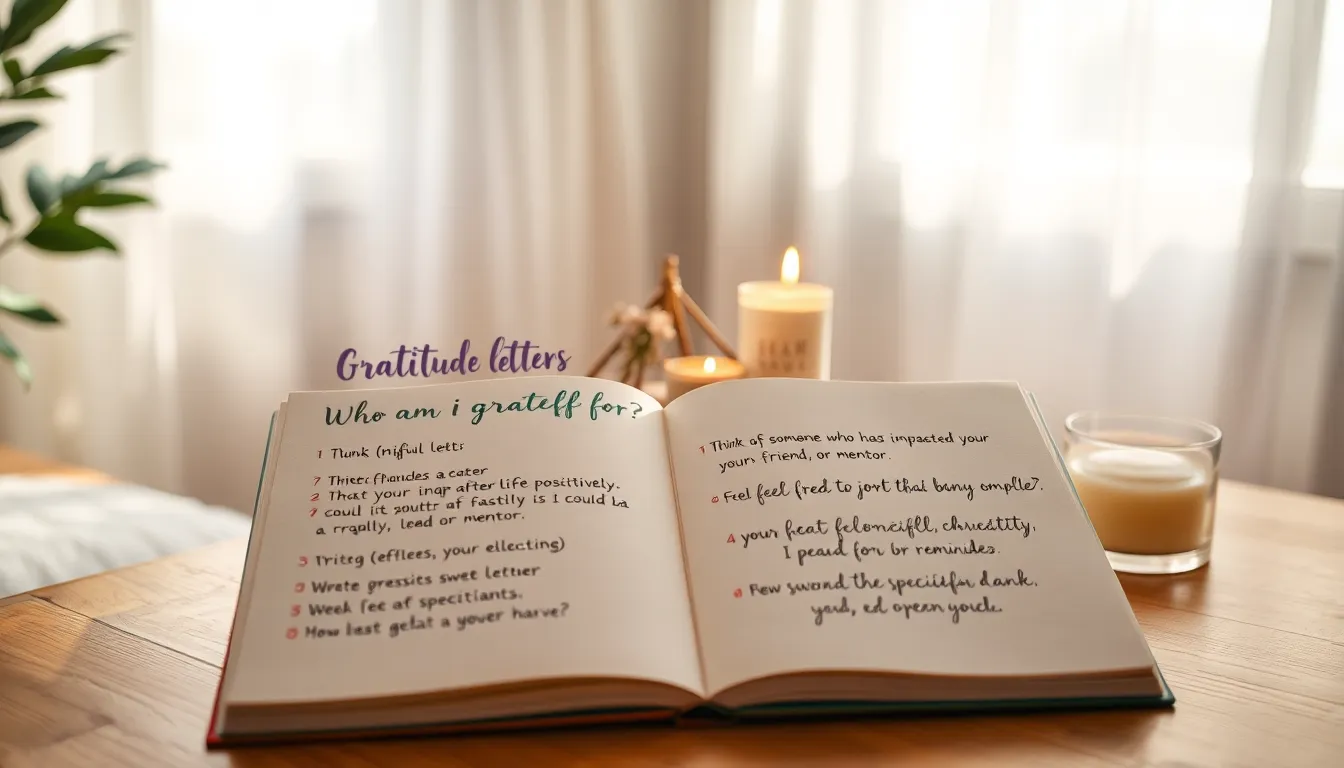 Gratitude letters
Who am i grateff for?
1 Thunk (nijful letts
7 Thiees fhandes a cater
2 That your ingr after life positively.
7 could lit soutr af fastily is I could ba
a rrqplly, lead or mentor.
3 Triteg (efflees, your ellecting)
3 Wrete gressics swet letter
3 Week fee af specitiants.
0 How best gelat a yover harve?
1 Think of someone who has impacted your
your friend, or mentor.
Feel feel fred to jort that bany omple?.
4 your heat feloncifll, chuestity,
I peard for br remindes.
Few sword the specilifin dank.
yard, ed opern yoick.